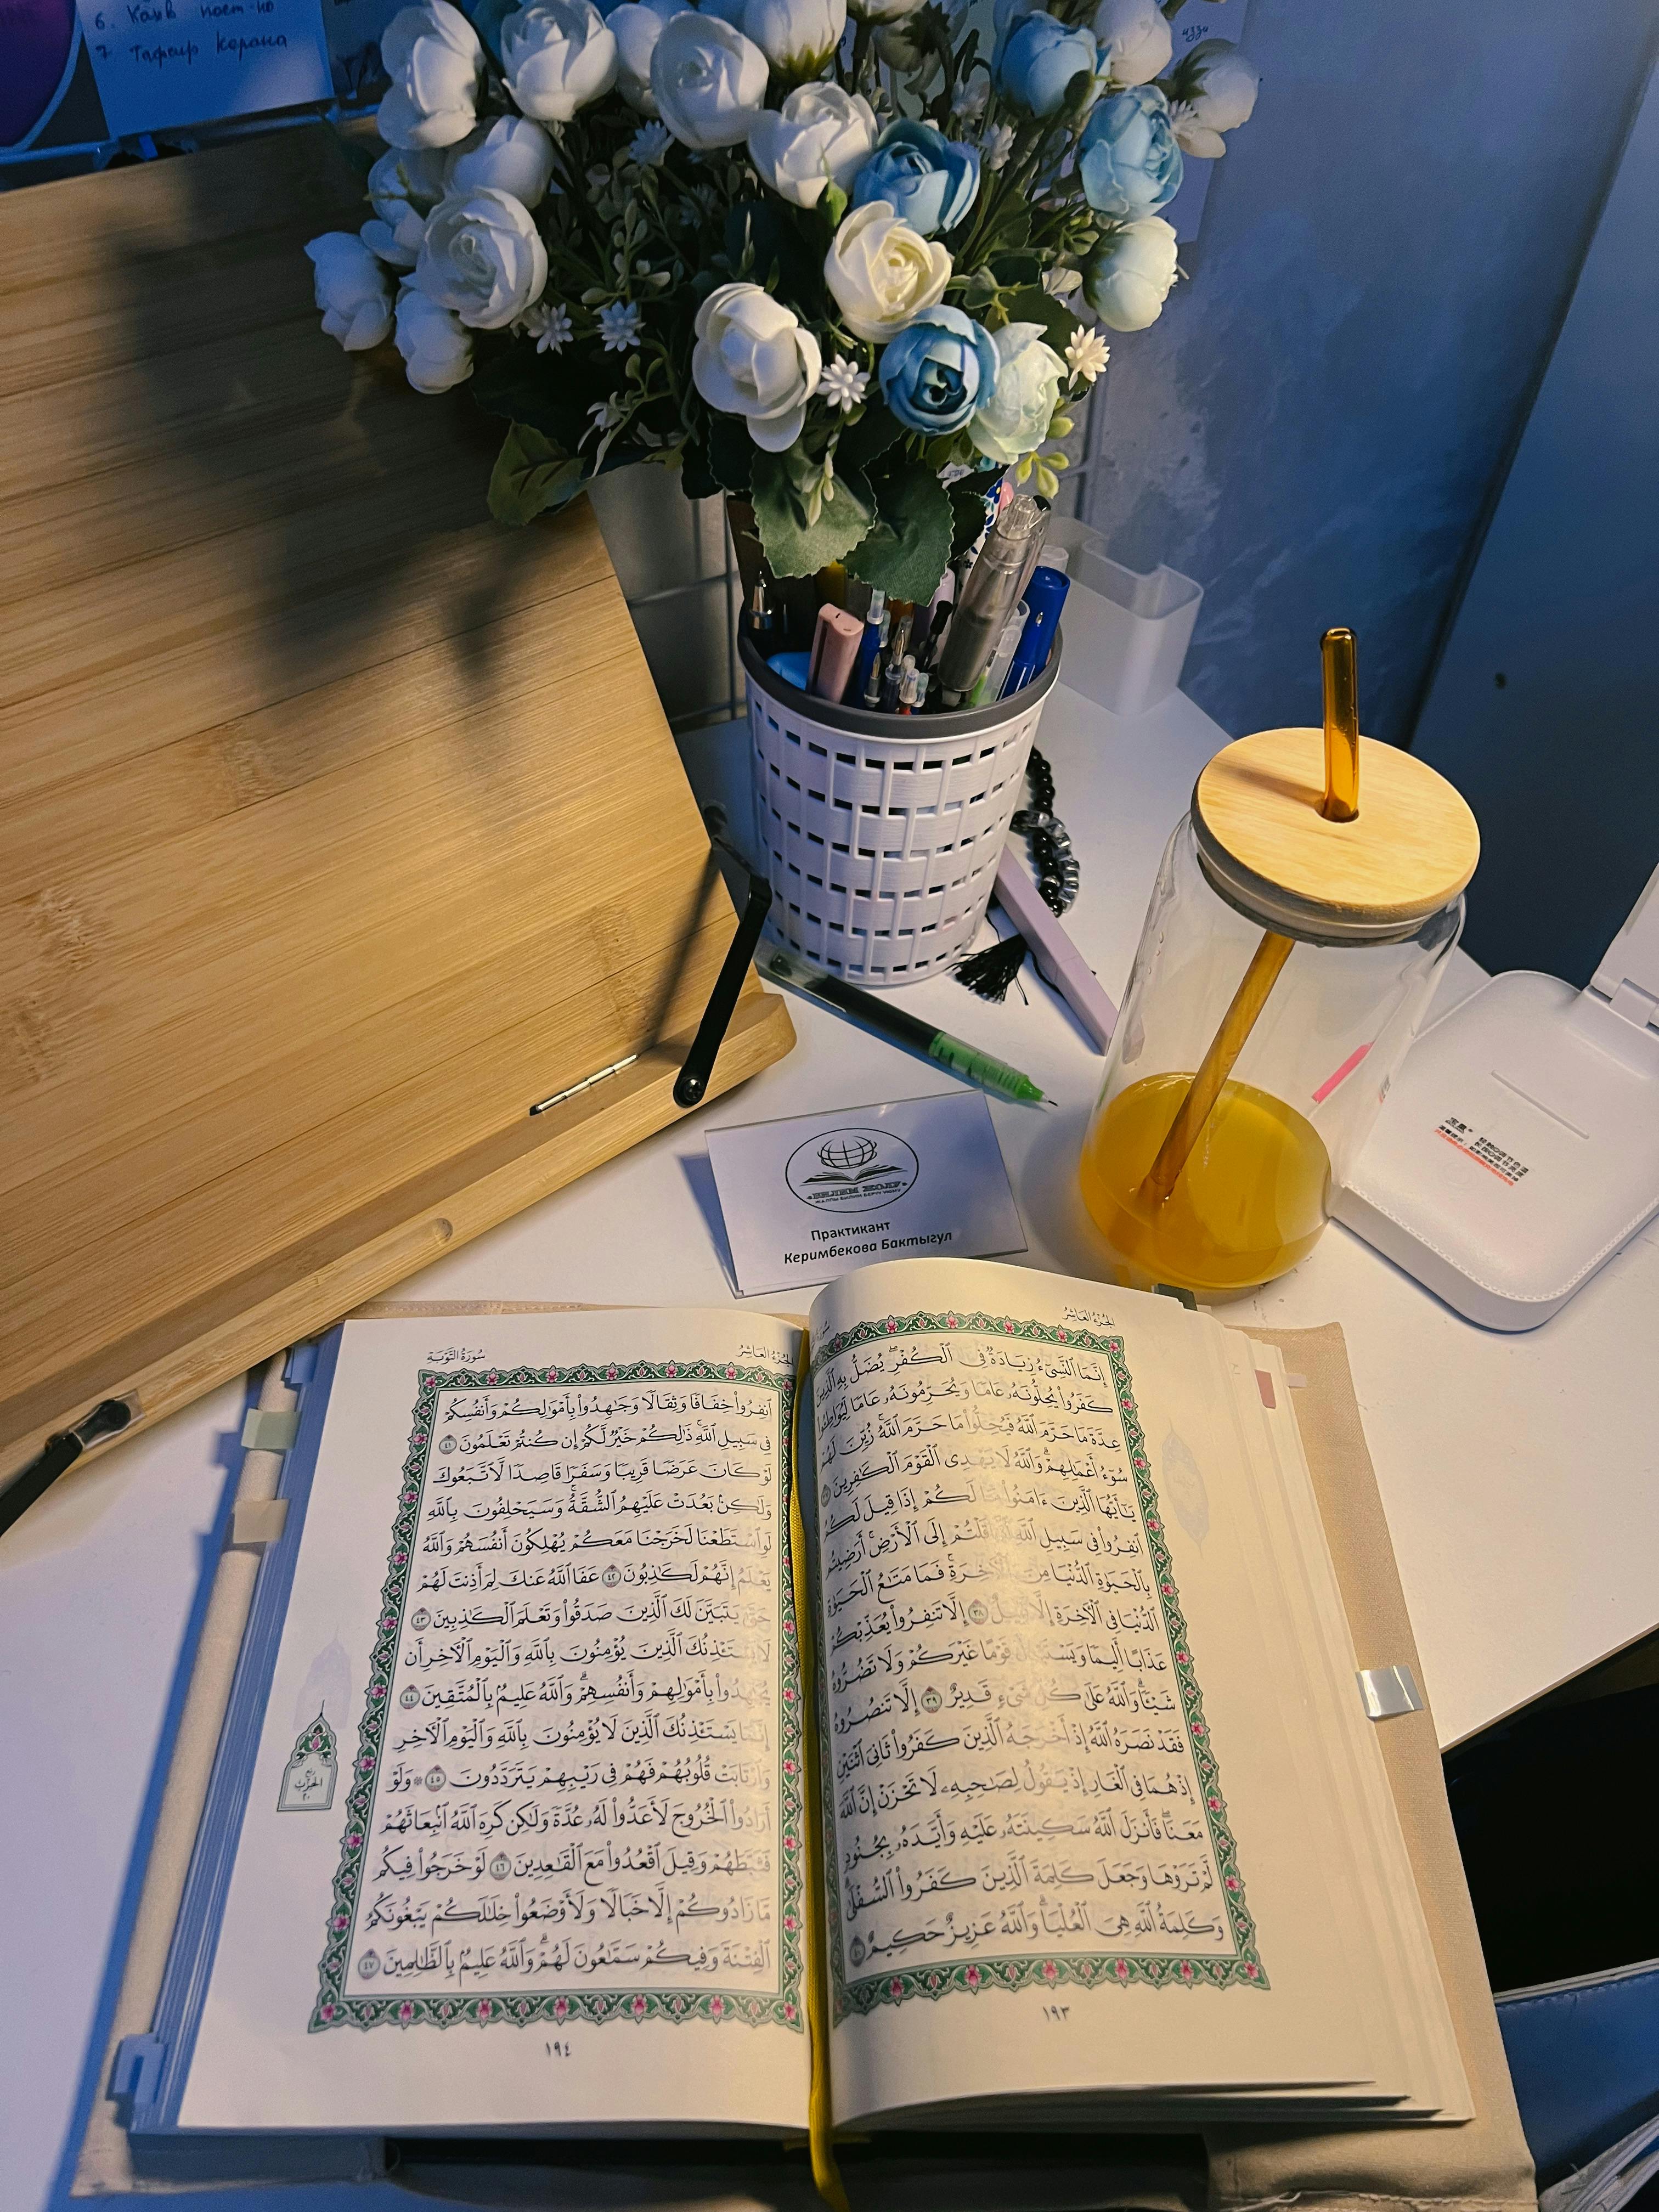 6. Калв
7. Тафсир Корана
БИЛИМ ЖОЛУ
ЖАЛПЫ БИЛИМ БЕРҮҮ
Практикант
Керимбекова Бактыгул
الجُزْءُ العَاشِرُ
إِنَّمَا ٱلنَّسِيٓءُ زِيَادَةٌ فِي ٱلْكُفْرِۖ يُضَلُّ بِهِ ٱلَّذِينَ
كَفَرُواْ يُحِلُّونَهُۥ عَامًا وَيُحَرِّمُونَهُۥ عَامًا لِّيُوَاطِـُٔواْ
عِدَّةَ مَا حَرَّمَ ٱللَّهُ فَيُحِلُّواْ مَا حَرَّمَ ٱللَّهُۚ زُيِّنَ لَهُمْ
سُوٓءُ أَعْمَٰلِهِمْۗ وَٱللَّهُ لَا يَهْدِي ٱلْقَوْمَ ٱلْكَٰفِرِينَ ٣٧
يَٰٓأَيُّهَا ٱلَّذِينَ ءَامَنُواْ مَا لَكُمْ إِذَا قِيلَ لَكُمُ
ٱنفِرُواْ فِي سَبِيلِ ٱللَّهِ ٱثَّاقَلْتُمْ إِلَى ٱلْأَرْضِۚ أَرَضِيتُم
بِٱلْحَيَوٰةِ ٱلدُّنْيَا مِنَ ٱلْأٓخِرَةِۚ فَمَا مَتَٰعُ ٱلْحَيَوٰةِ
ٱلدُّنْيَا فِي ٱلْأٓخِرَةِ إِلَّا قَلِيلٌ ٣٨ إِلَّا تَنفِرُواْ يُعَذِّبْكُمْ
عَذَابًا أَلِيمًا وَيَسْتَبْدِلْ قَوْمًا غَيْرَكُمْ وَلَا تَضُرُّوهُ
شَيْـًٔاۗ وَٱللَّهُ عَلَىٰ كُلِّ شَيْءٍ قَدِيرٌ ٣٩ إِلَّا تَنصُرُوهُ
فَقَدْ نَصَرَهُ ٱللَّهُ إِذْ أَخْرَجَهُ ٱلَّذِينَ كَفَرُواْ ثَانِيَ ٱثْنَيْنِ
إِذْ هُمَا فِي ٱلْغَارِ إِذْ يَقُولُ لِصَٰحِبِهِۦ لَا تَحْزَنْ إِنَّ ٱللَّهَ
مَعَنَاۖ فَأَنزَلَ ٱللَّهُ سَكِينَتَهُۥ عَلَيْهِ وَأَيَّدَهُۥ بِجُنُودٍ
لَّمْ تَرَوْهَا وَجَعَلَ كَلِمَةَ ٱلَّذِينَ كَفَرُواْ ٱلسُّفْلَىٰۗ
وَكَلِمَةُ ٱللَّهِ هِيَ ٱلْعُلْيَاۗ وَٱللَّهُ عَزِيزٌ حَكِيمٌ ٤٠
١٩٣
الجُزْءُ العَاشِرُ
سُورَةُ التَّوْبَةِ
ٱنفِرُواْ خِفَافًا وَثِقَالًا وَجَٰهِدُواْ بِأَمْوَٰلِكُمْ وَأَنفُسِكُمْ
فِي سَبِيلِ ٱللَّهِۚ ذَٰلِكُمْ خَيْرٌ لَّكُمْ إِن كُنتُمْ تَعْلَمُونَ ٤١
لَوْ كَانَ عَرَضًا قَرِيبًا وَسَفَرًا قَاصِدًا لَّٱتَّبَعُوكَ
وَلَٰكِنۢ بَعُدَتْ عَلَيْهِمُ ٱلشُّقَّةُۚ وَسَيَحْلِفُونَ بِٱللَّهِ
لَوِ ٱسْتَطَعْنَا لَخَرَجْنَا مَعَكُمْ يُهْلِكُونَ أَنفُسَهُمْ وَٱللَّهُ
يَعْلَمُ إِنَّهُمْ لَكَٰذِبُونَ ٤٢ عَفَا ٱللَّهُ عَنكَ لِمَ أَذِنتَ لَهُمْ
حَتَّىٰ يَتَبَيَّنَ لَكَ ٱلَّذِينَ صَدَقُواْ وَتَعْلَمَ ٱلْكَٰذِبِينَ ٤٣
لَا يَسْتَـْٔذِنُكَ ٱلَّذِينَ يُؤْمِنُونَ بِٱللَّهِ وَٱلْيَوْمِ ٱلْأٓخِرِ أَن
يُجَٰهِدُواْ بِأَمْوَٰلِهِمْ وَأَنفُسِهِمْۗ وَٱللَّهُ عَلِيمٌۢ بِٱلْمُتَّقِينَ ٤٤
إِنَّمَا يَسْتَـْٔذِنُكَ ٱلَّذِينَ لَا يُؤْمِنُونَ بِٱللَّهِ وَٱلْيَوْمِ ٱلْأٓخِرِ
وَٱرْتَابَتْ قُلُوبُهُمْ فَهُمْ فِي رَيْبِهِمْ يَتَرَدَّدُونَ ٤٥ ۞ وَلَوْ
أَرَادُواْ ٱلْخُرُوجَ لَأَعَدُّواْ لَهُۥ عُدَّةً وَلَٰكِن كَرِهَ ٱللَّهُ ٱنۢبِعَاثَهُمْ
فَثَبَّطَهُمْ وَقِيلَ ٱقْعُدُواْ مَعَ ٱلْقَٰعِدِينَ ٤٦ لَوْ خَرَجُواْ فِيكُم
مَّا زَادُوكُمْ إِلَّا خَبَالًا وَلَأَوْضَعُواْ خِلَٰلَكُمْ يَبْغُونَكُمُ
ٱلْفِتْنَةَ وَفِيكُمْ سَمَّٰعُونَ لَهُمْۗ وَٱللَّهُ عَلِيمٌۢ بِٱلظَّٰلِمِينَ ٤٧
ربع
الحزب
٢٠
١٩٤